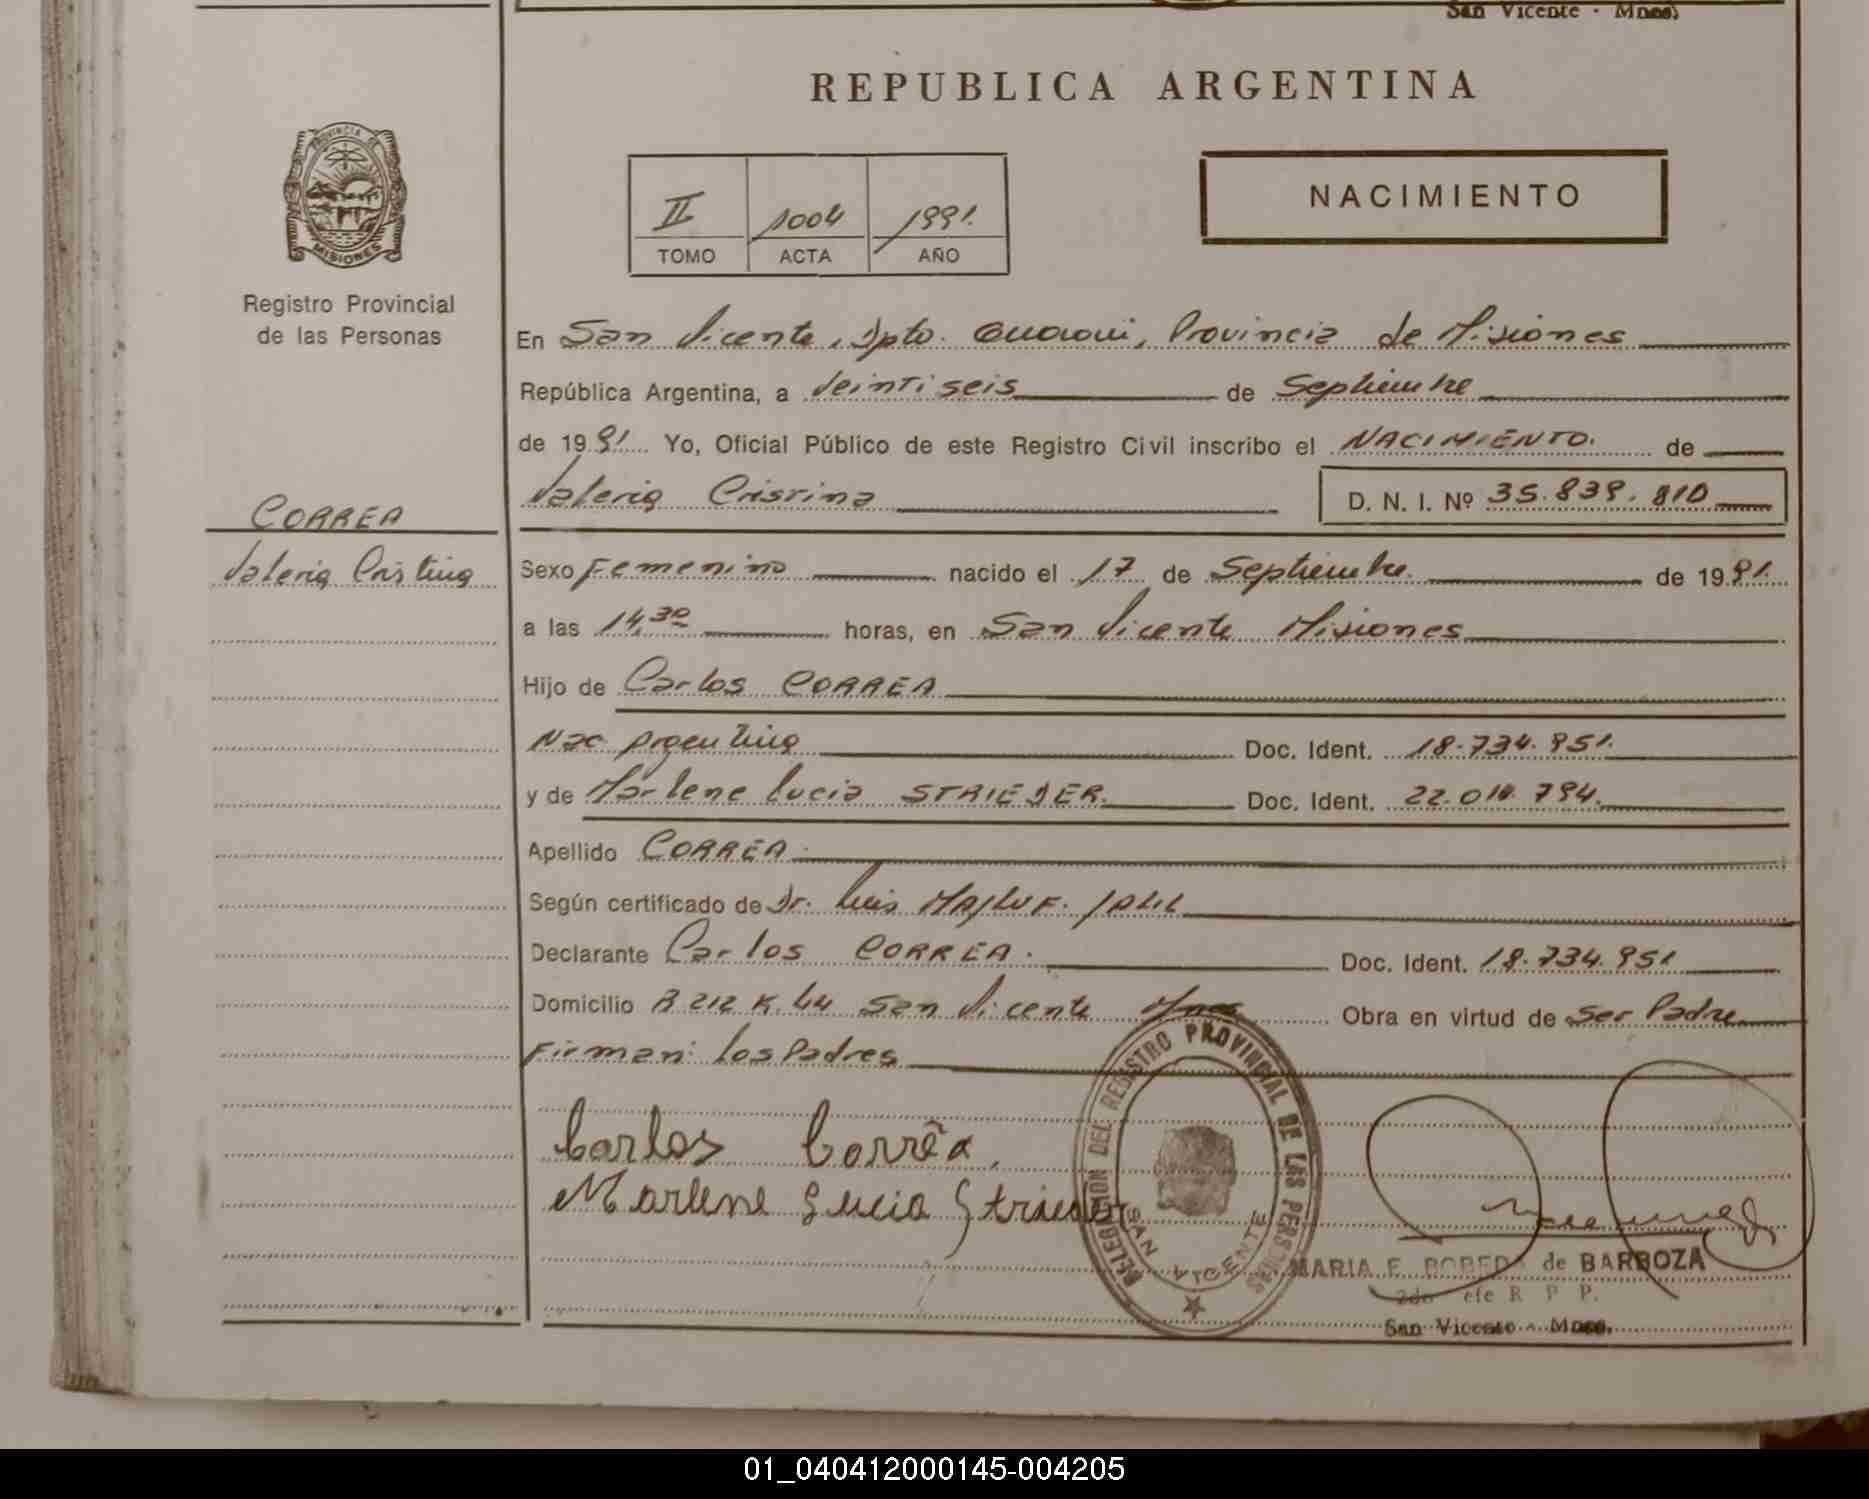 San Vicente - Mnes.
REPUBLICA ARGENTINA
PROVINCIA DE
MISIONES
Registro Provincial
de las Personas
II 1004 1991.
TOMO ACTA AÑO
NACIMIENTO
En San Vicente, Dpto. Guarani, Provincia de Misiones
República Argentina, a Veintiseis de Septiembre
de 1991 Yo, Oficial Público de este Registro Civil inscribo el NACIMIENTO. de
Valeria Cristina D. N. I. Nº 35.839.810
CORREA
Valeria Cristina
Sexo Femenino nacido el 17 de Septiembre. de 1991.
a las 14,30 horas, en San Vicente Misiones
Hijo de Carlos CORREA
Nac. Argentina Doc. Ident. 18.734.951.
y de Marlene Lucia STRIEDER. Doc. Ident. 22.014.794.
Apellido CORREA.
Según certificado de Dr. Luis MAJLUF. JALIL
Declarante Carlos CORREA. Doc. Ident. 18.734.951
Domicilio B 212 K. 44 San Vicente Mnes Obra en virtud de Ser Padre
Firman: Los Padres
Carlos Corrêa.
Marlene Lucia Strieder
DELEGACION DEL REGISTRO PROVINCIAL DE LAS PERSONAS
SAN VICENTE
MARIA E. de BARBOZA
2do R P P.
San Vicente - Mnes.
01_040412000145-004205